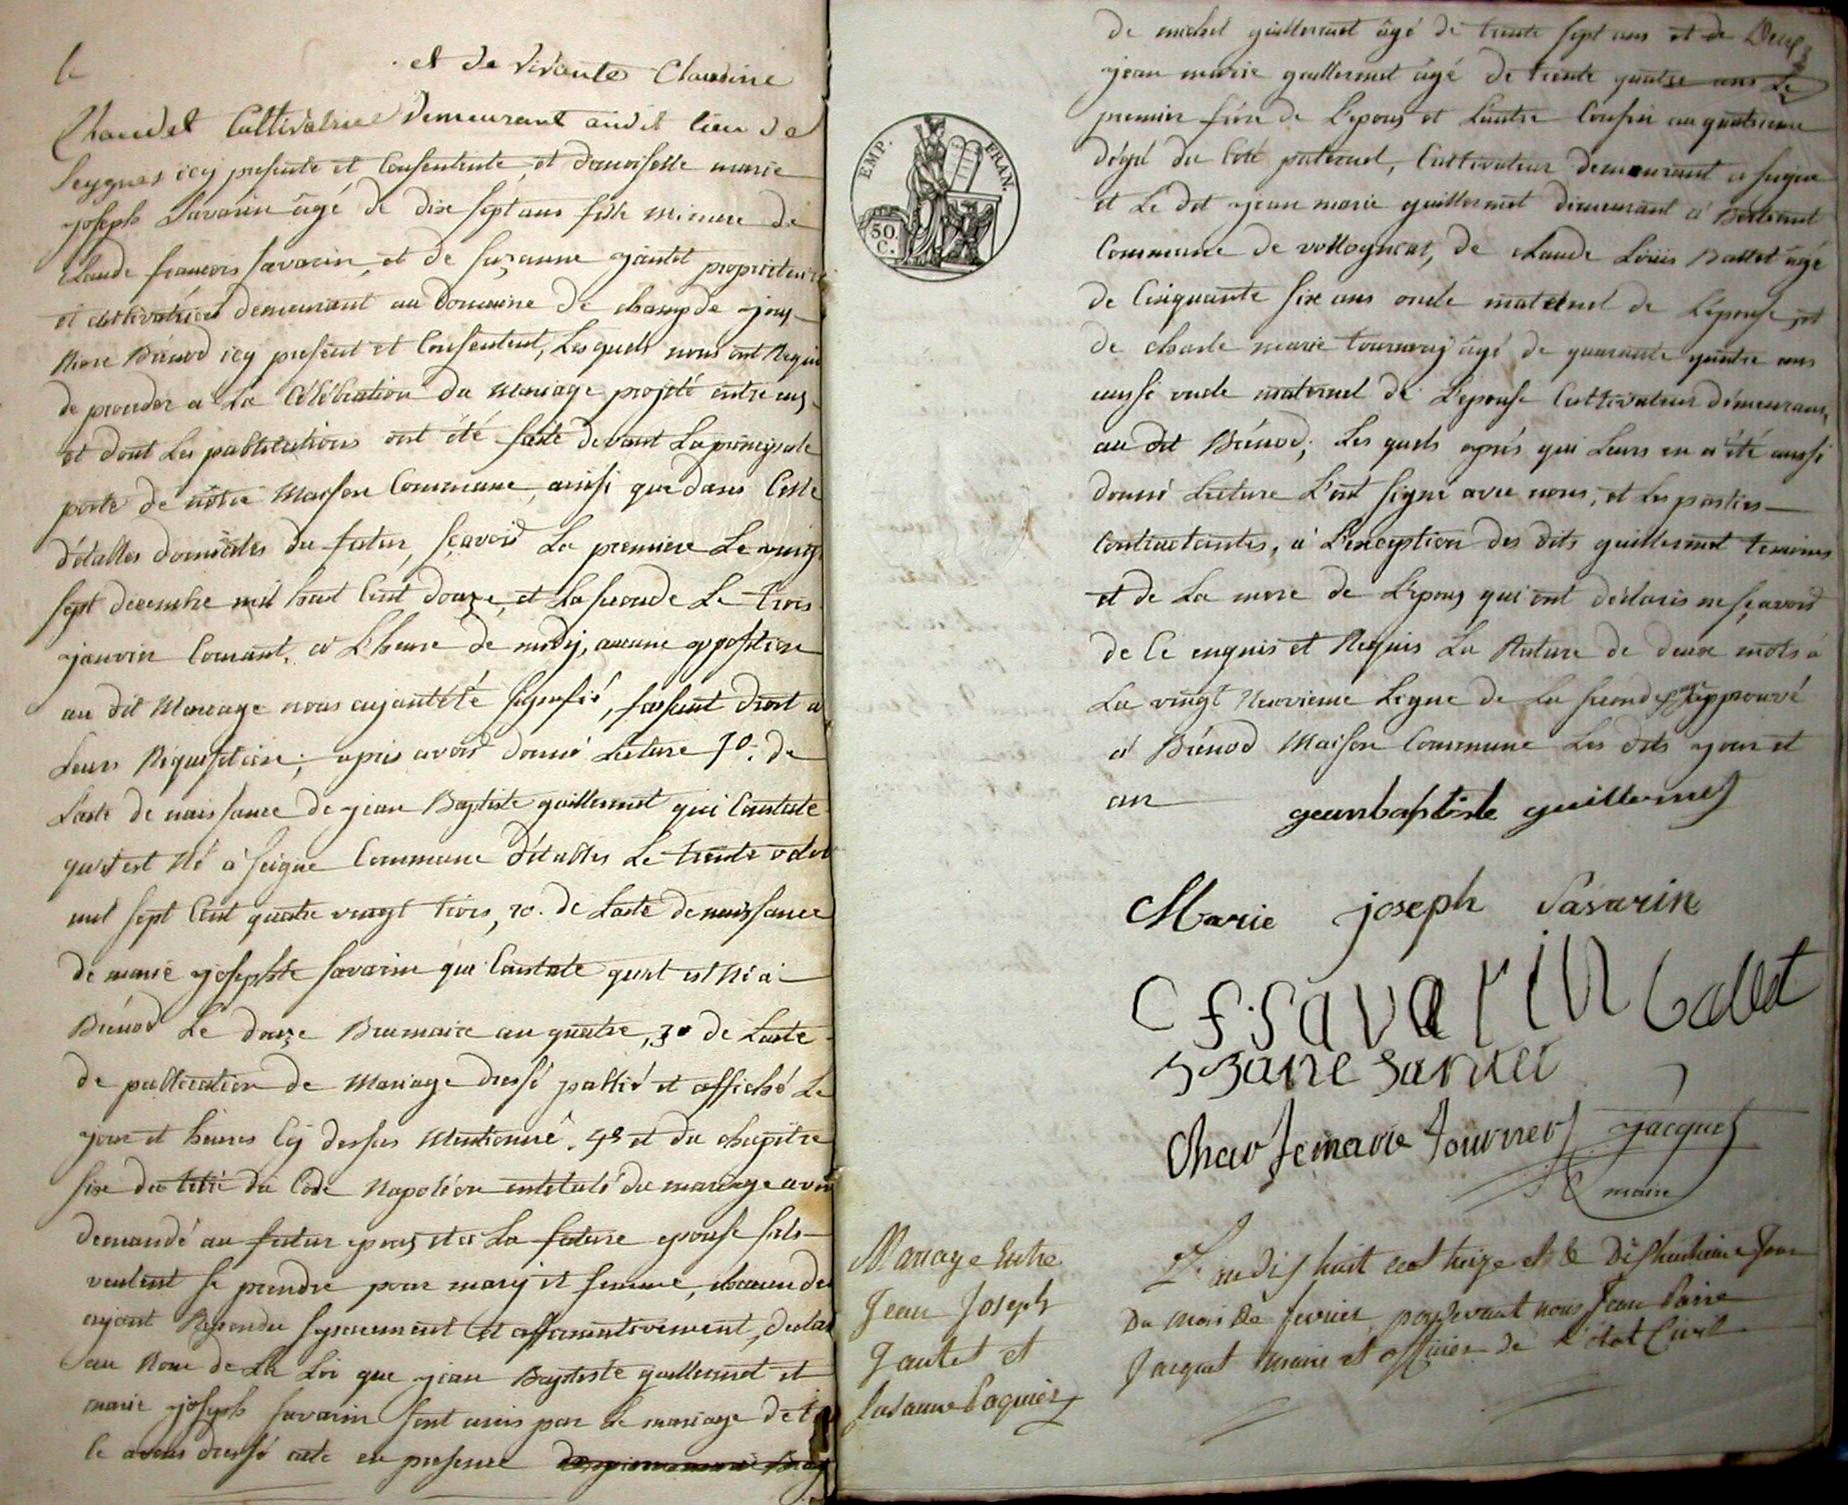 et de vivante Claudine
Chaudet Cultivatrice demeurant audit lieu de
Seygnes icy presente et Consentente, et demoiselle marie
joseph Savarin âgé de dix sept ans fille mineure de
Claude francois savarin, et de suzanne jantet proprietaire
et cultivatrice demeurant au domaine de champ de
Rière Biénod icy present et Consentent, Lesquels nous ont Requis
de proceder a La Célébration du Mariage projeté entre eux
et dont Les publications ont été faite devant La principale
porte de nôtre Maison Commune, ainsi que dans Celle
d'étalles domiciles du futur, sçavoir La premiere Le vingt
sept decembre mil huit Cent douze, et La seconde Le trois
janvier Courant, a L'heure de midy, aucune opposition
au dit Mariage nous ayant été signifié, faisant droit a
Leurs Réquisition; après avoir donné Lecture 1o. de
L'acte de naissance de jean Baptiste guillermet qui Constate
qu'il est Né à seigne Commune d'étalles Le trente
mil sept Cent quatre vingt trois, 2o. de L'acte de naissance
de marie joseph savarin qui Constate qu'il est Né a
Biénod Le douze Brumaire an quatre, 3o de L'acte
de publication de Mariage dressé publié et affiché Le
jour et heures Cy dessus Mentionné. 4o et du chapitre
six du titre du Code Napoléon intitulé du mariage avoir
demandé au futur epoux et a La future epouse s'ils
veulent se prendre pour mary et femme, chacun deux
ayant Repondu separement et affirmativement, declarons
au Nom de La Loi que jean Baptiste guillermet et
marie joseph savarin sont unis par Le mariage de tout
ce avons dressé acte en presence
de michel guillermet âgé de trente sept ans et de
jean marie guillermet âgé de trente quatre ans Le
premier frére de L'epoux et L'autre Cousin au quatrieme
dégré du Coté paternel, Cultivateur demeurant a seigne
et Le dit jean marie guillermet demeurant a
Commune de vollognat, de claude Loüis Ballet âgé
de Cinquante six ans oncle maternel de L'epouse, et
de charle marie tournery âgé de quarante quatre ans
aussi oncle maternel de L'epouse Cultivateur démeurant
au dit Biénod; Les quels après qui Leurs en a été aussi
donné Lecture L'ont signé avec nous, et Les parties
Contractantes, à L'exception des dits guillermet temoins
et de La mere de L'epoux qui ont declarés ne sçavoir
de Ce enquis et Requis La Rature de deux mots a
La vingt Neuvieme Ligne de La seconde page approuvé
a Biénod Maison Commune Les dits jour et
an
jeanbaptiste guillermet
Marie joseph Savarin
C f savarin ballet
Charle marie tourner jacquet
maire
Mariage Entre
Jean Joseph
Jantet et
Susanne Paquier
L'an dix huit cent treize et le dishuitieme Jour
Du mois de fevrier, pardevant nous Jean Pierre
Jacquet maire et officier de l'état Civil
EMP. FRAN.
50.
C.